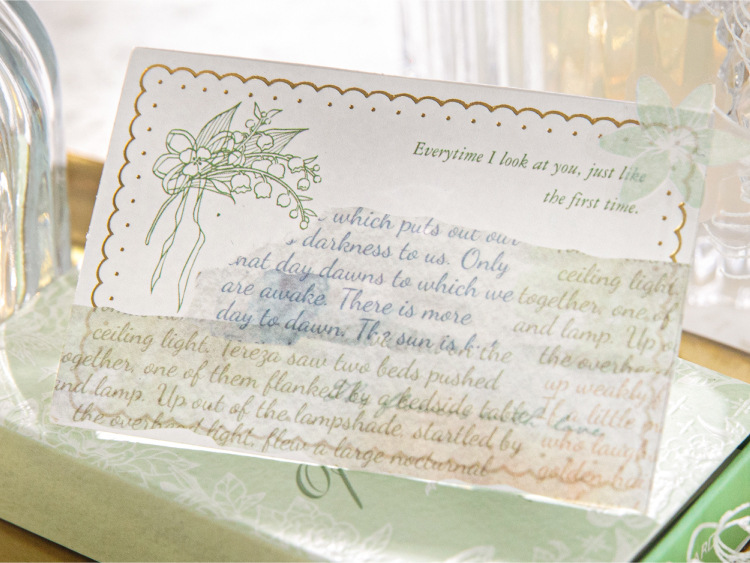 Everytime I look at you, just like
the first time.
which puts out our
darkness to us. Only
day dawns to which we
are awake. There is more
day to dawn. The sun is
ceiling light.
together, one of
and lamp. Up
the overhead
up weakly
little
who
golden
ceiling light. Tereza saw two beds pushed
together, one of them flanked by a bedside table
and lamp. Up out of the lampshade, startled by
the overhead light, flew a large nocturnal